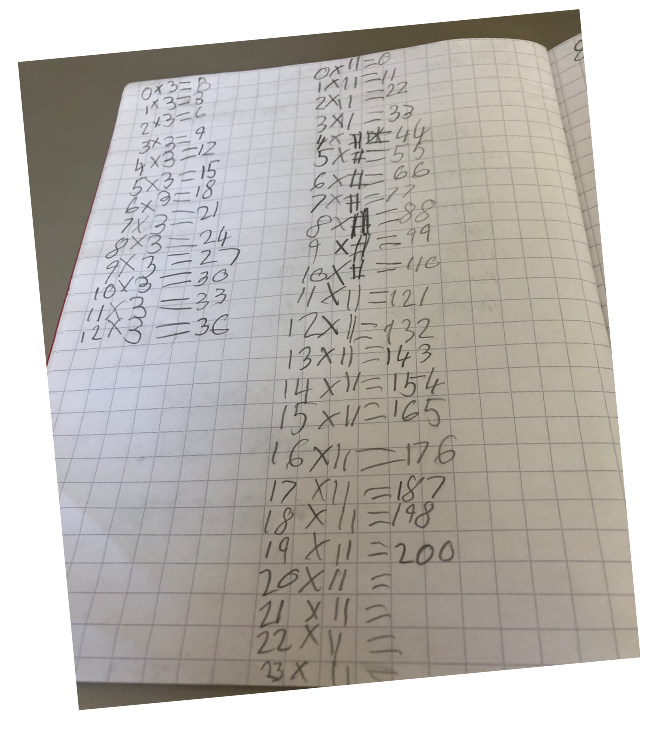 0x3=0
1x3=3
2x3=6
3x3=9
4x3=12
5x3=15
6x3=18
7x3=21
8x3=24
9x3=27
10x3=30
11x3=33
12x3=36
0x11=0
1x11=11
2x11=22
3x11=33
4x11=44
5x11=55
6x11=66
7x11=77
8x11=88
9x11=99
10x11=110
11x11=121
12x11=132
13x11=143
14x11=154
15x11=165
16x11=176
17x11=187
18x11=198
19x11=200
20x11=
21x11=
22x11=
23x11=